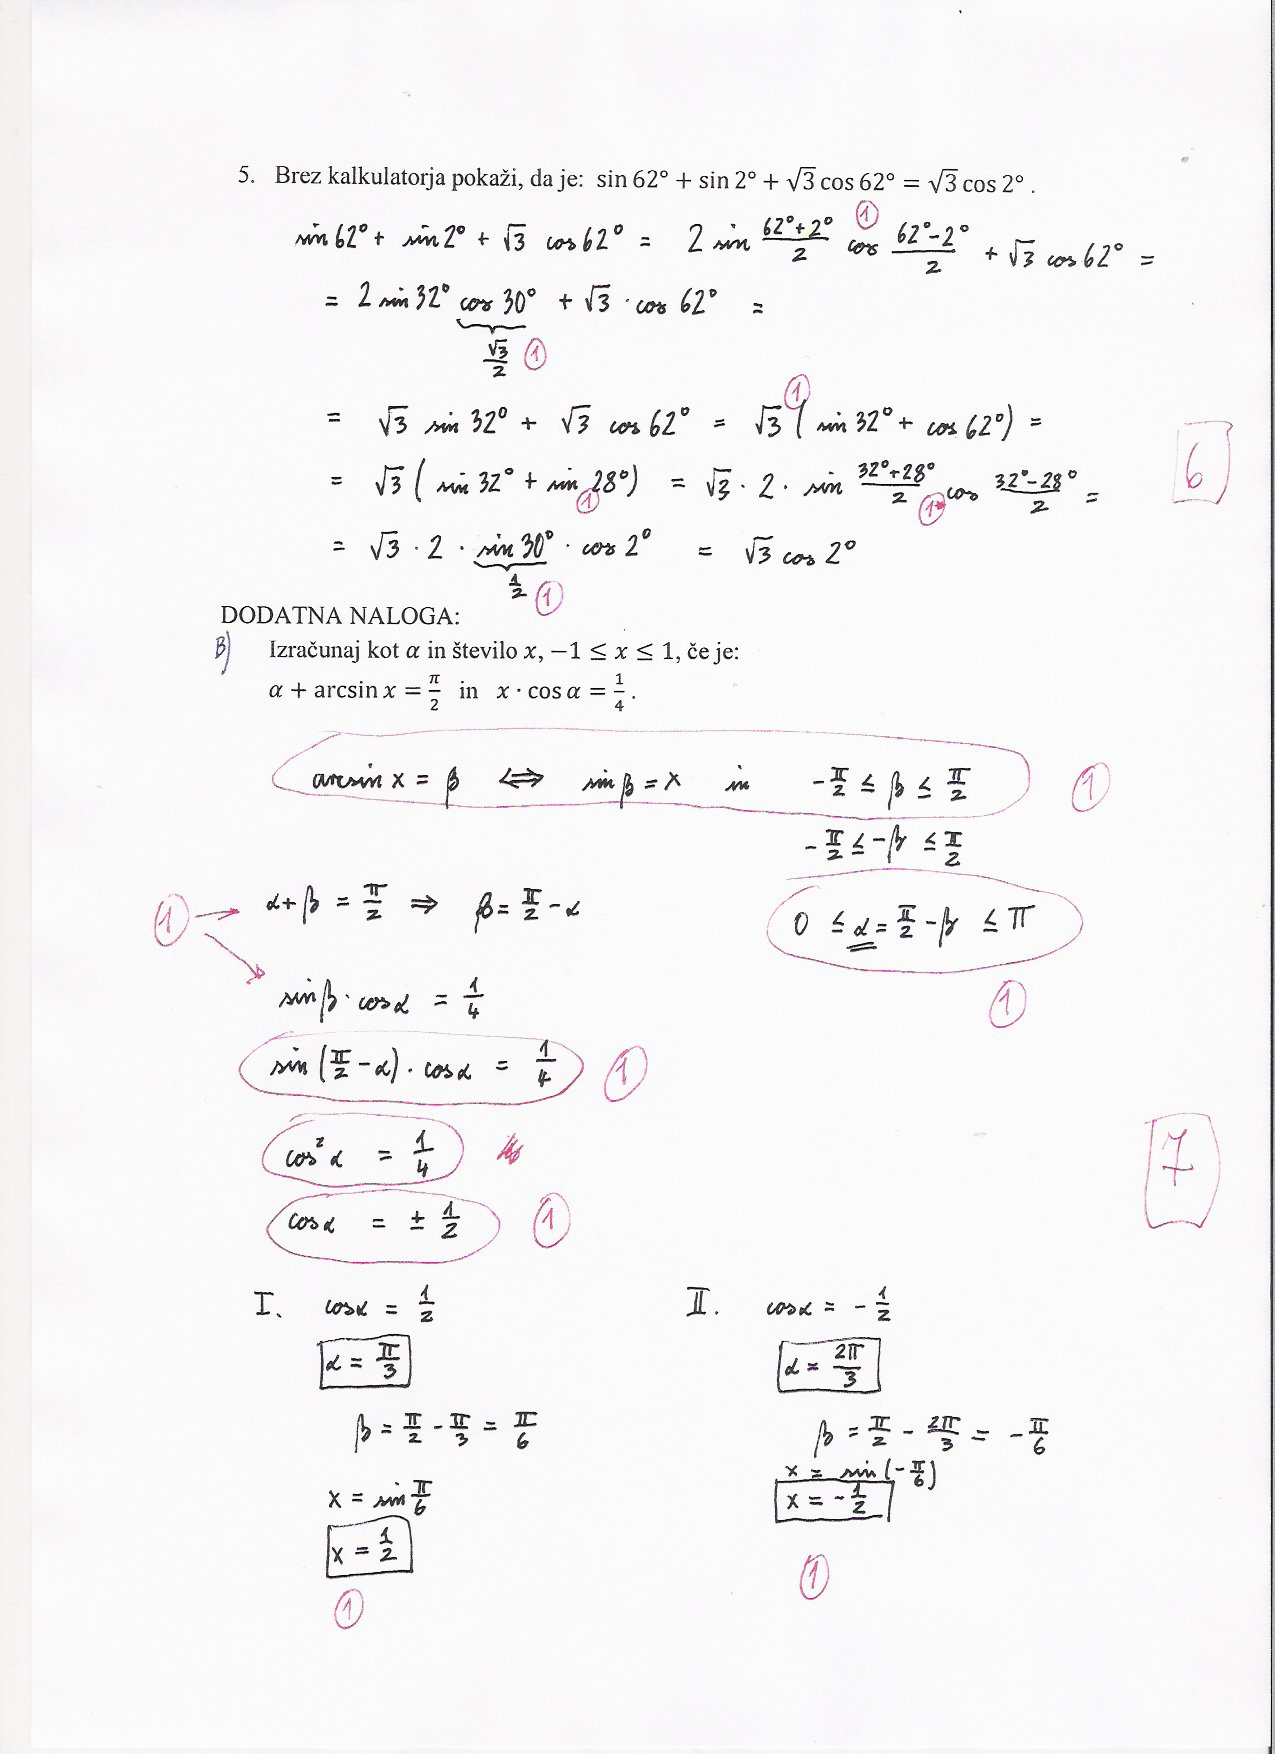 5. Brez kalkulatorja pokaži, da je: sin 62° + sin 2° + √3 cos 62° = √3 cos 2° .
sin 62° + sin 2° + √3 cos 62° = 2 sin (62°+2°)/2 cos (62°-2°)/2 + √3 cos 62° =
①
= 2 sin 32° cos 30° + √3 · cos 62° =
√3/2 ①
= √3 sin 32° + √3 cos 62° = √3 ( sin 32° + cos 62° ) =
①
= √3 ( sin 32° + sin 28° ) = √3 · 2 · sin (32°+28°)/2 cos (32°-28°)/2 =
① ①
6
= √3 · 2 · sin 30° · cos 2° = √3 cos 2°
1/2 ①
DODATNA NALOGA:
B) Izračunaj kot α in število x, −1 ≤ x ≤ 1, če je:
α + arcsin x = π/2 in x · cos α = 1/4 .
arcsin x = β ⟺ sin β = x in -π/2 ≤ β ≤ π/2 ①
-π/2 ≤ -β ≤ π/2
① α + β = π/2 ⇒ β = π/2 - α
0 ≤ α = π/2 - β ≤ π
①
sin β · cos α = 1/4
sin (π/2 - α) · cos α = 1/4 ①
cos² α = 1/4
7
cos α = ± 1/2 ①
I. cos α = 1/2
α = π/3
β = π/2 - π/3 = π/6
x = sin π/6
x = 1/2
①
II. cos α = - 1/2
α = 2π/3
β = π/2 - 2π/3 = - π/6
x = sin (- π/6)
x = - 1/2
①